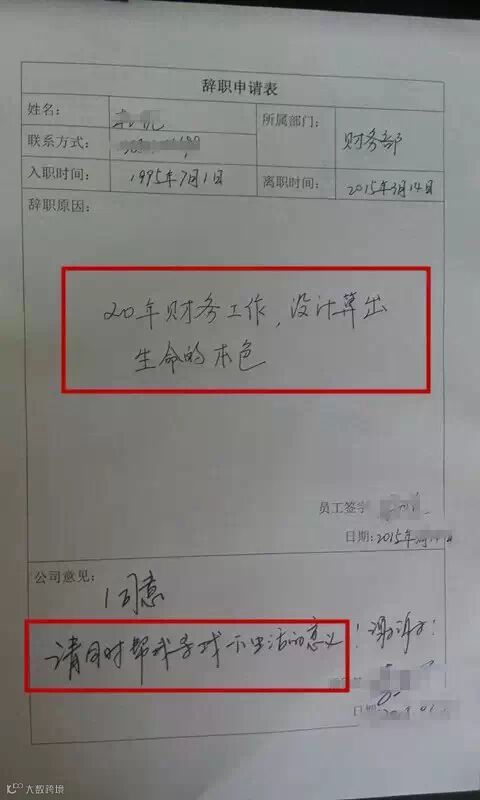 辞职申请表
姓名:
所属部门: 财务部
联系方式:
入职时间: 1995年7月1日 离职时间: 2015年3月14日
辞职原因:
20年财务工作,没计算出
生命的本色
员工签字
日期:2015年
公司意见:
同意
请同时帮我寻找一下生活的意义!谢谢!
日期:
大数跨境